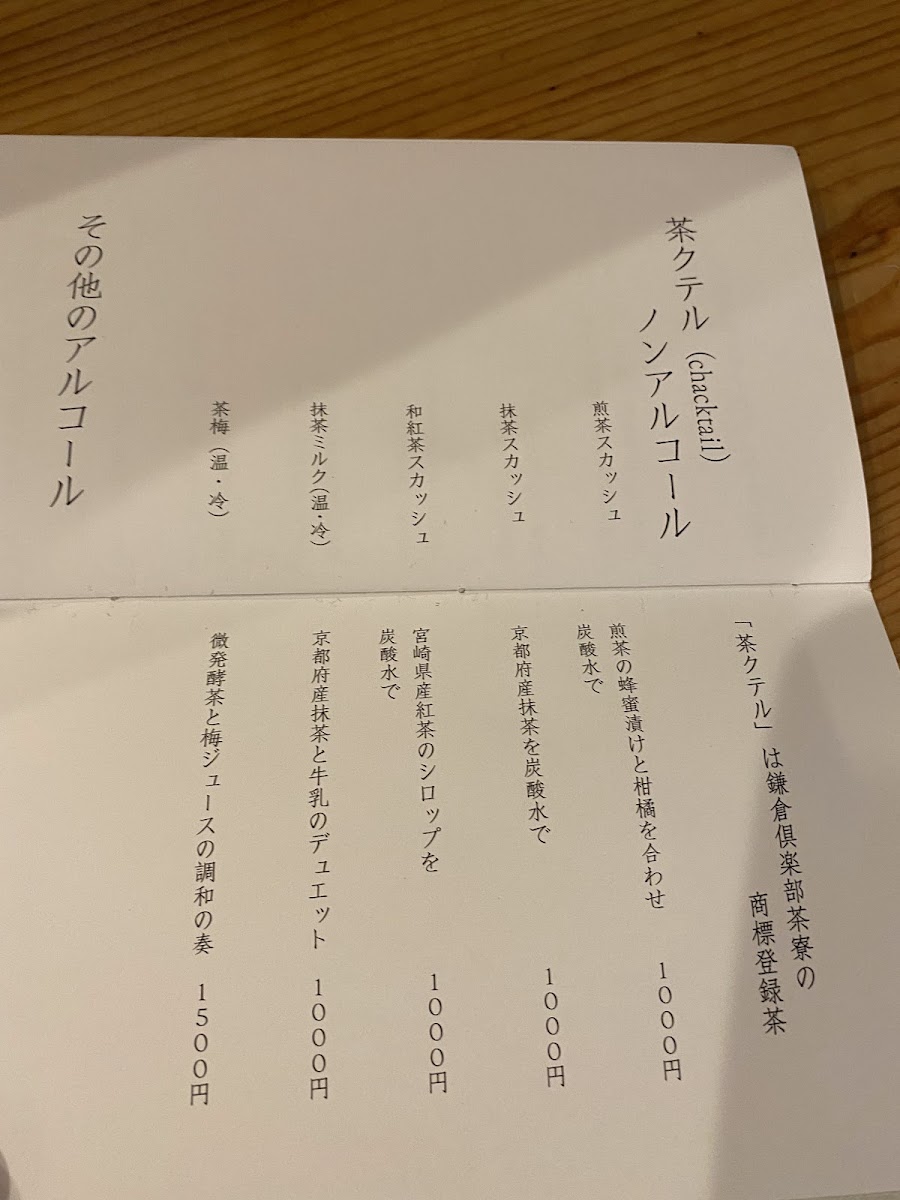 茶クテル(chacktail)
ノンアルコール
「茶クテル」は鎌倉倶楽部茶寮の
商標登録茶
煎茶スカッシュ
煎茶の蜂蜜漬けと柑橘を合わせ
炭酸水で
1000円
抹茶スカッシュ
京都府産抹茶を炭酸水で
1000円
和紅茶スカッシュ
宮崎県産紅茶のシロップを
炭酸水で
1000円
抹茶ミルク(温・冷)
京都府産抹茶と牛乳のデュエット
1000円
茶梅(温・冷)
微発酵茶と梅ジュースの調和の奏
1500円
その他のアルコール